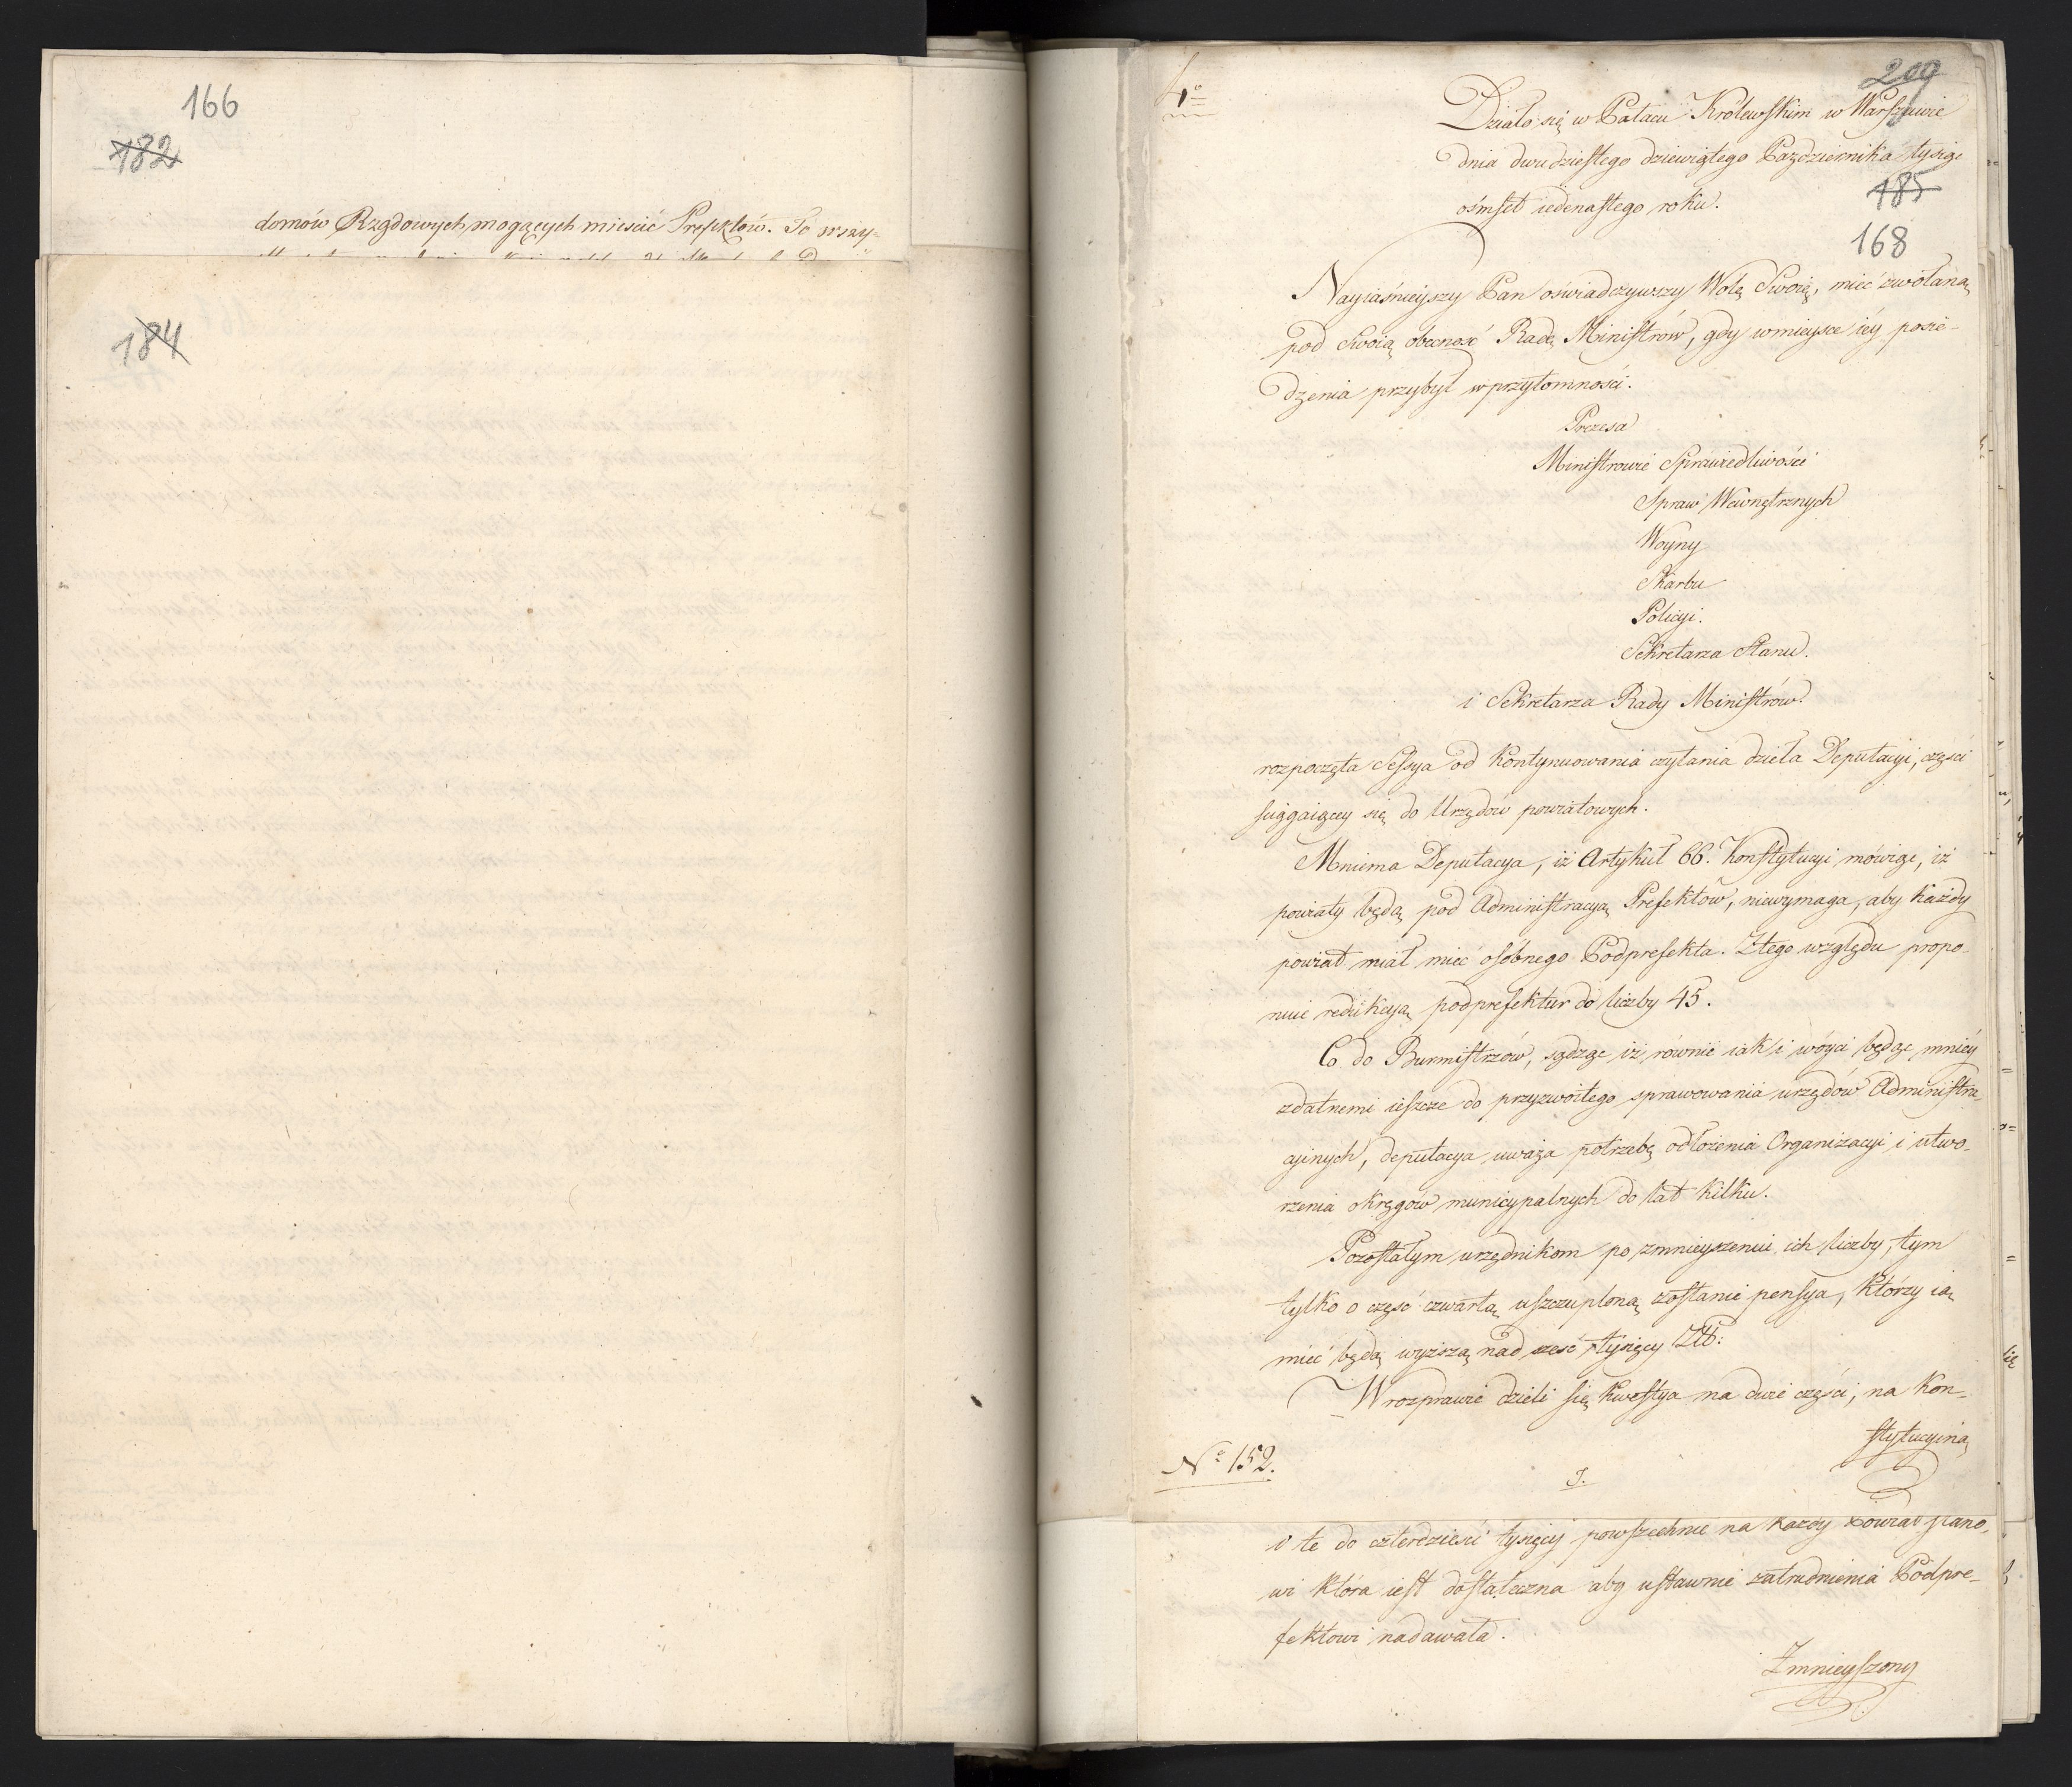 166
182
domów Rządowych mogących mieścić Prefektów. To wszy-
184
1º
209
Działo się w Pałacu Królewskim w Warszawie
dnia dwudziestego dziewiątego Października tysiąc
185
ośmset iedenastego roku.
168
Nayiaśnieyszy Pan oświadczywszy Wolę Swoię, mieć zwołaną
pod Swoią obecność Radę Ministrów, gdy w mieysce iéy posie-
dzenia przybył w przytomności.
Prezesa
Ministrowie Sprawiedliwości
Spraw Wewnętrznych
Woyny
Skarbu
Policyi.
Sekretarza Stanu.
i Sekretarza Rady Ministrów.
rozpoczęta Sessya od kontynuowania czytania dzieła Deputacyi, części
sciągaiącey się do Urzędów powiatowych.
Mniema Deputacya, iż Artykuł 66. Konstytucyi mówiąc, iż
powiaty będą pod Administracyą Prefektów, niewymaga, aby każdy
powiat miał mieć osobnego Podprefekta. Z tego względu propo-
nuie redukcyą podprefektur do liczby 45.
Co do Burmistrzów, sądząc iż równie iak i wóyci będąc mniéy
zdatnemi ieszcze do przyzwoitego sprawowania urzędów Administra-
cyinych, deputacya uważa potrzebę odłożenia Organizacyi i utwo-
rzenia okręgów municypalnych do lat kilku.
Pozostałym urzędnikom po zmnieyszeniu ich liczby, tym
tylko o część czwartą uszczuploną zostanie pensya, którzy ią
mieć będą wyższą nad sześć tysięcy Złł:
W rozprawie dzieli się kwestya na dwie części, na Kon-
stytucyiną
Nº 152.
J.
o te do czterdzieści tysięcy powszechnie na każdy Powiat stano-
wi która iest dostateczna aby ustawnie zatrudnienia Podpre-
fektowi nadawała.
Zmnieyszony